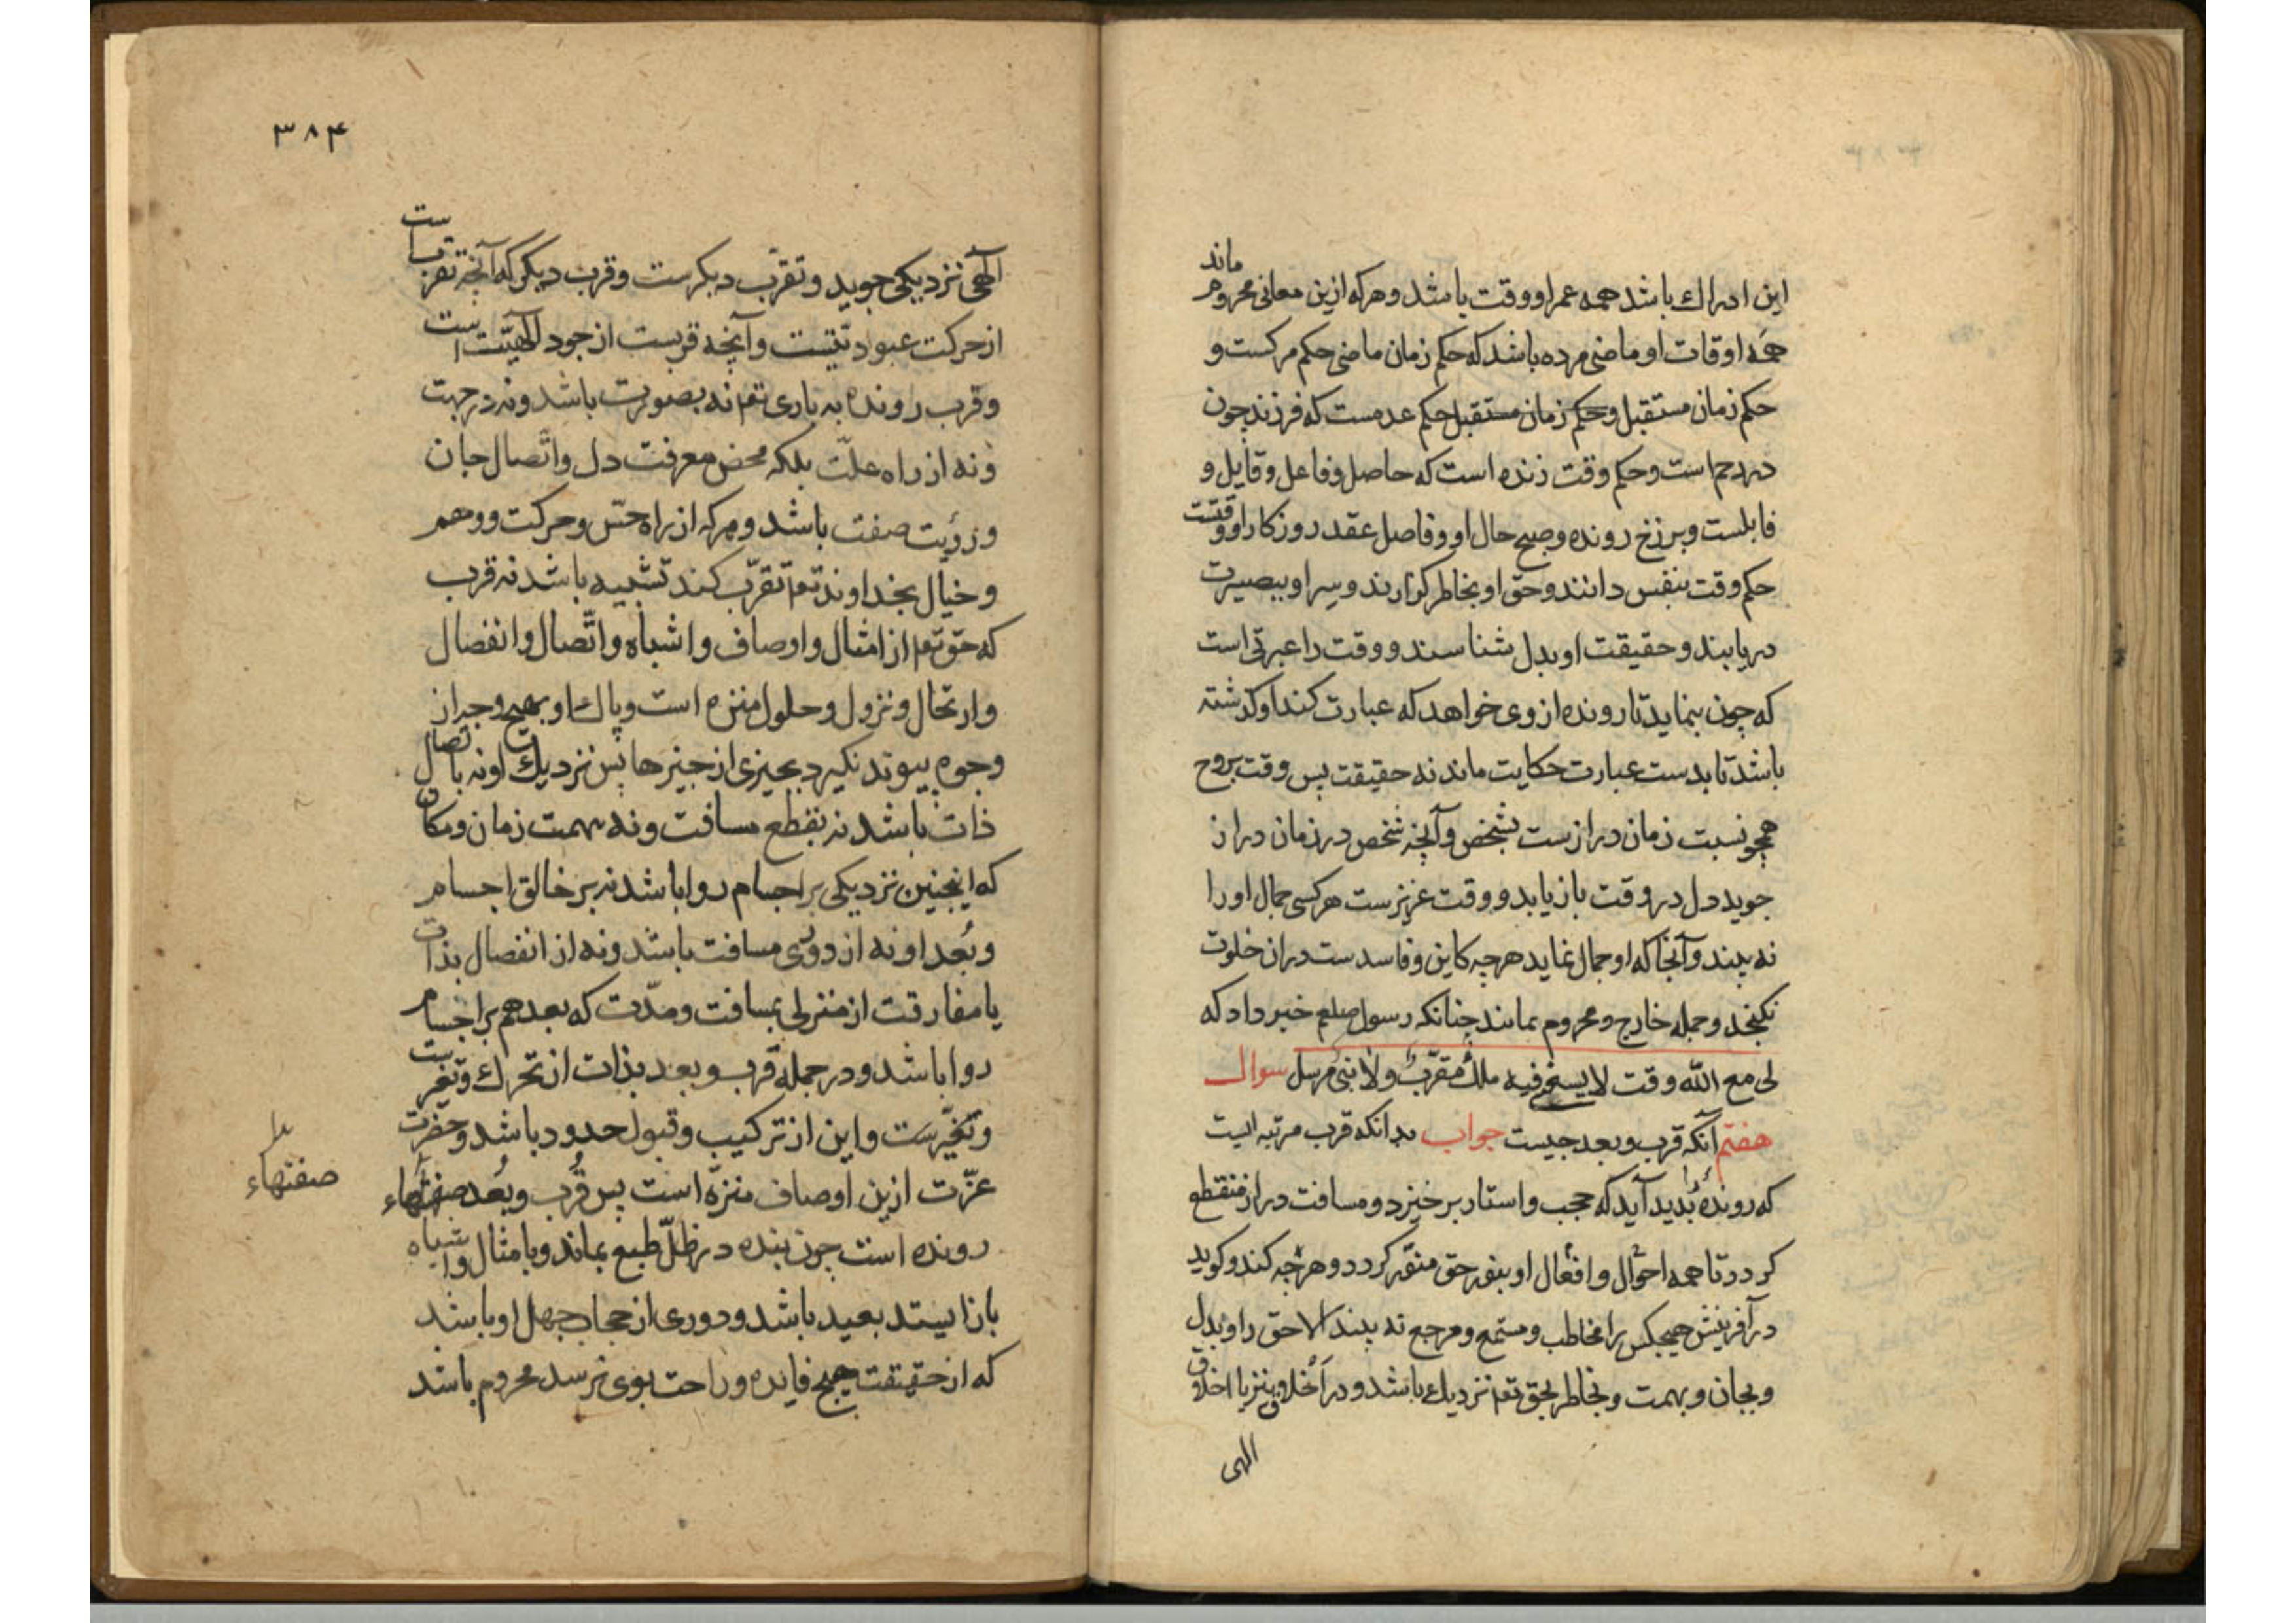 این ادراك باشد همه عمر او وقت باشد و هركه ازین معانی محروم ماند
همه اوقات او ماضی مرده باشد كه حكم زمان ماضی حكم مركست و
حكم زمان مستقبل و حكم زمان مستقبل حكم عدمست كه فرزند چون
در رحم است و حكم وقت زنده است كه حاصل و فاعل و قایل و
قابلست و برزخ رونده و صبح حال او و فاصل عقد روزكار او وقتست
حكم وقت بنفس دانند و حق او بخاطر كزارند و سِر او ببصیرت
دریابند و حقیقت او بدل شناسند و وقت را عبرتی است
كه چون بنماید تا رونده از وی خواهد كه عبارت كند او كذشته
باشد تا بدست عبارت حكایت ماند نه حقیقت پس وقت بروح
همچو نسبت زمان درازست بشخص و آنچه شخص در زمان دراز
جوید دل در وقت بازیابد و وقت عزیزست هركسی جمال او را
نه بیند و آنجا كه او جمال نماید هرچه كاین و فاسدست در ان خلوت
نكنجد و جمله خارج و محروم بمانند چنانكه رسول صلعم خبر داد كه
لی مع الله وقت لا یسعنی فیه ملكٌ مقرّبٌ ولا نبی مرسل سوال
هفتم آنكه قرب و بعد چیست جواب بدانكه قرب مرتبه ایست
كه رونده را بُدید آید كه حجب و استار برخیزد و مسافت دراز منقطع
كردد تا همه احوال و افعال او بنور حق منوّر كردد و هرچه كند و كوید
در آفرینش هیچكس را مخاطب و مستمع و مرجع نه بیند الا حق را و بدل
و بجان و بهمت و بخاطر بحق تعم نزدیك باشد و در اخلاق نیز با اخلاق
الهی
۳۸۴
الٓهی نزدیكی جوید و تقرّب دیكرست و قرب دیكر كه آنچه تقربست
از حركت عبودیّتست و آنچه قربست از جود الٓهیّت است
و قرب رونده به باری تعم نه بصورت باشد و نه در جهت
و نه از راه علّت بلكه محض معرفت دل و اتّصال جان
و رؤیت صفت باشد و هركه از راه حسّ و حركت و وهم
و خیال بخداوند تعم تقرّب كند تشبیه باشد نه قرب
كه حق تعم از امثال و اوصاف و اشباه و اتّصال و انفصال
و ارتحال و نزول و حلول منزه است و پاك او بهیچ وجه از
وجوه پیوند نكیرد بچیزی از چیزها پس نزدیك او نه باتصال
ذات باشد نه بقطع مسافت و نه بهمت زمان و مكان
كه اینچنین نزدیكی بر اجسام روا باشد نه بر خالق اجسام
و بُعد او نه از دوری مسافت باشد و نه از انفصال بذات
یا مفارقت از منزلی بمسافت و مدّت كه بعد هم بر اجسام
روا باشد و در جمله قرب و بعد بذات از تحرك
و تغیّرست و این از تركیب و قبول حدود باشد و حضرت
عزّت ازین اوصاف منزّه است پس قُرب و بُعد صفتهاء
صفتهاء
رونده است چون بنده در ظلّ طبع بماند و بامثال و اشباه
باز ایستد بعید باشد و دوری از حجاب جهل او باشد
كه از حقیقت هیچ فایده و راحت بوی نرسد محروم باشد